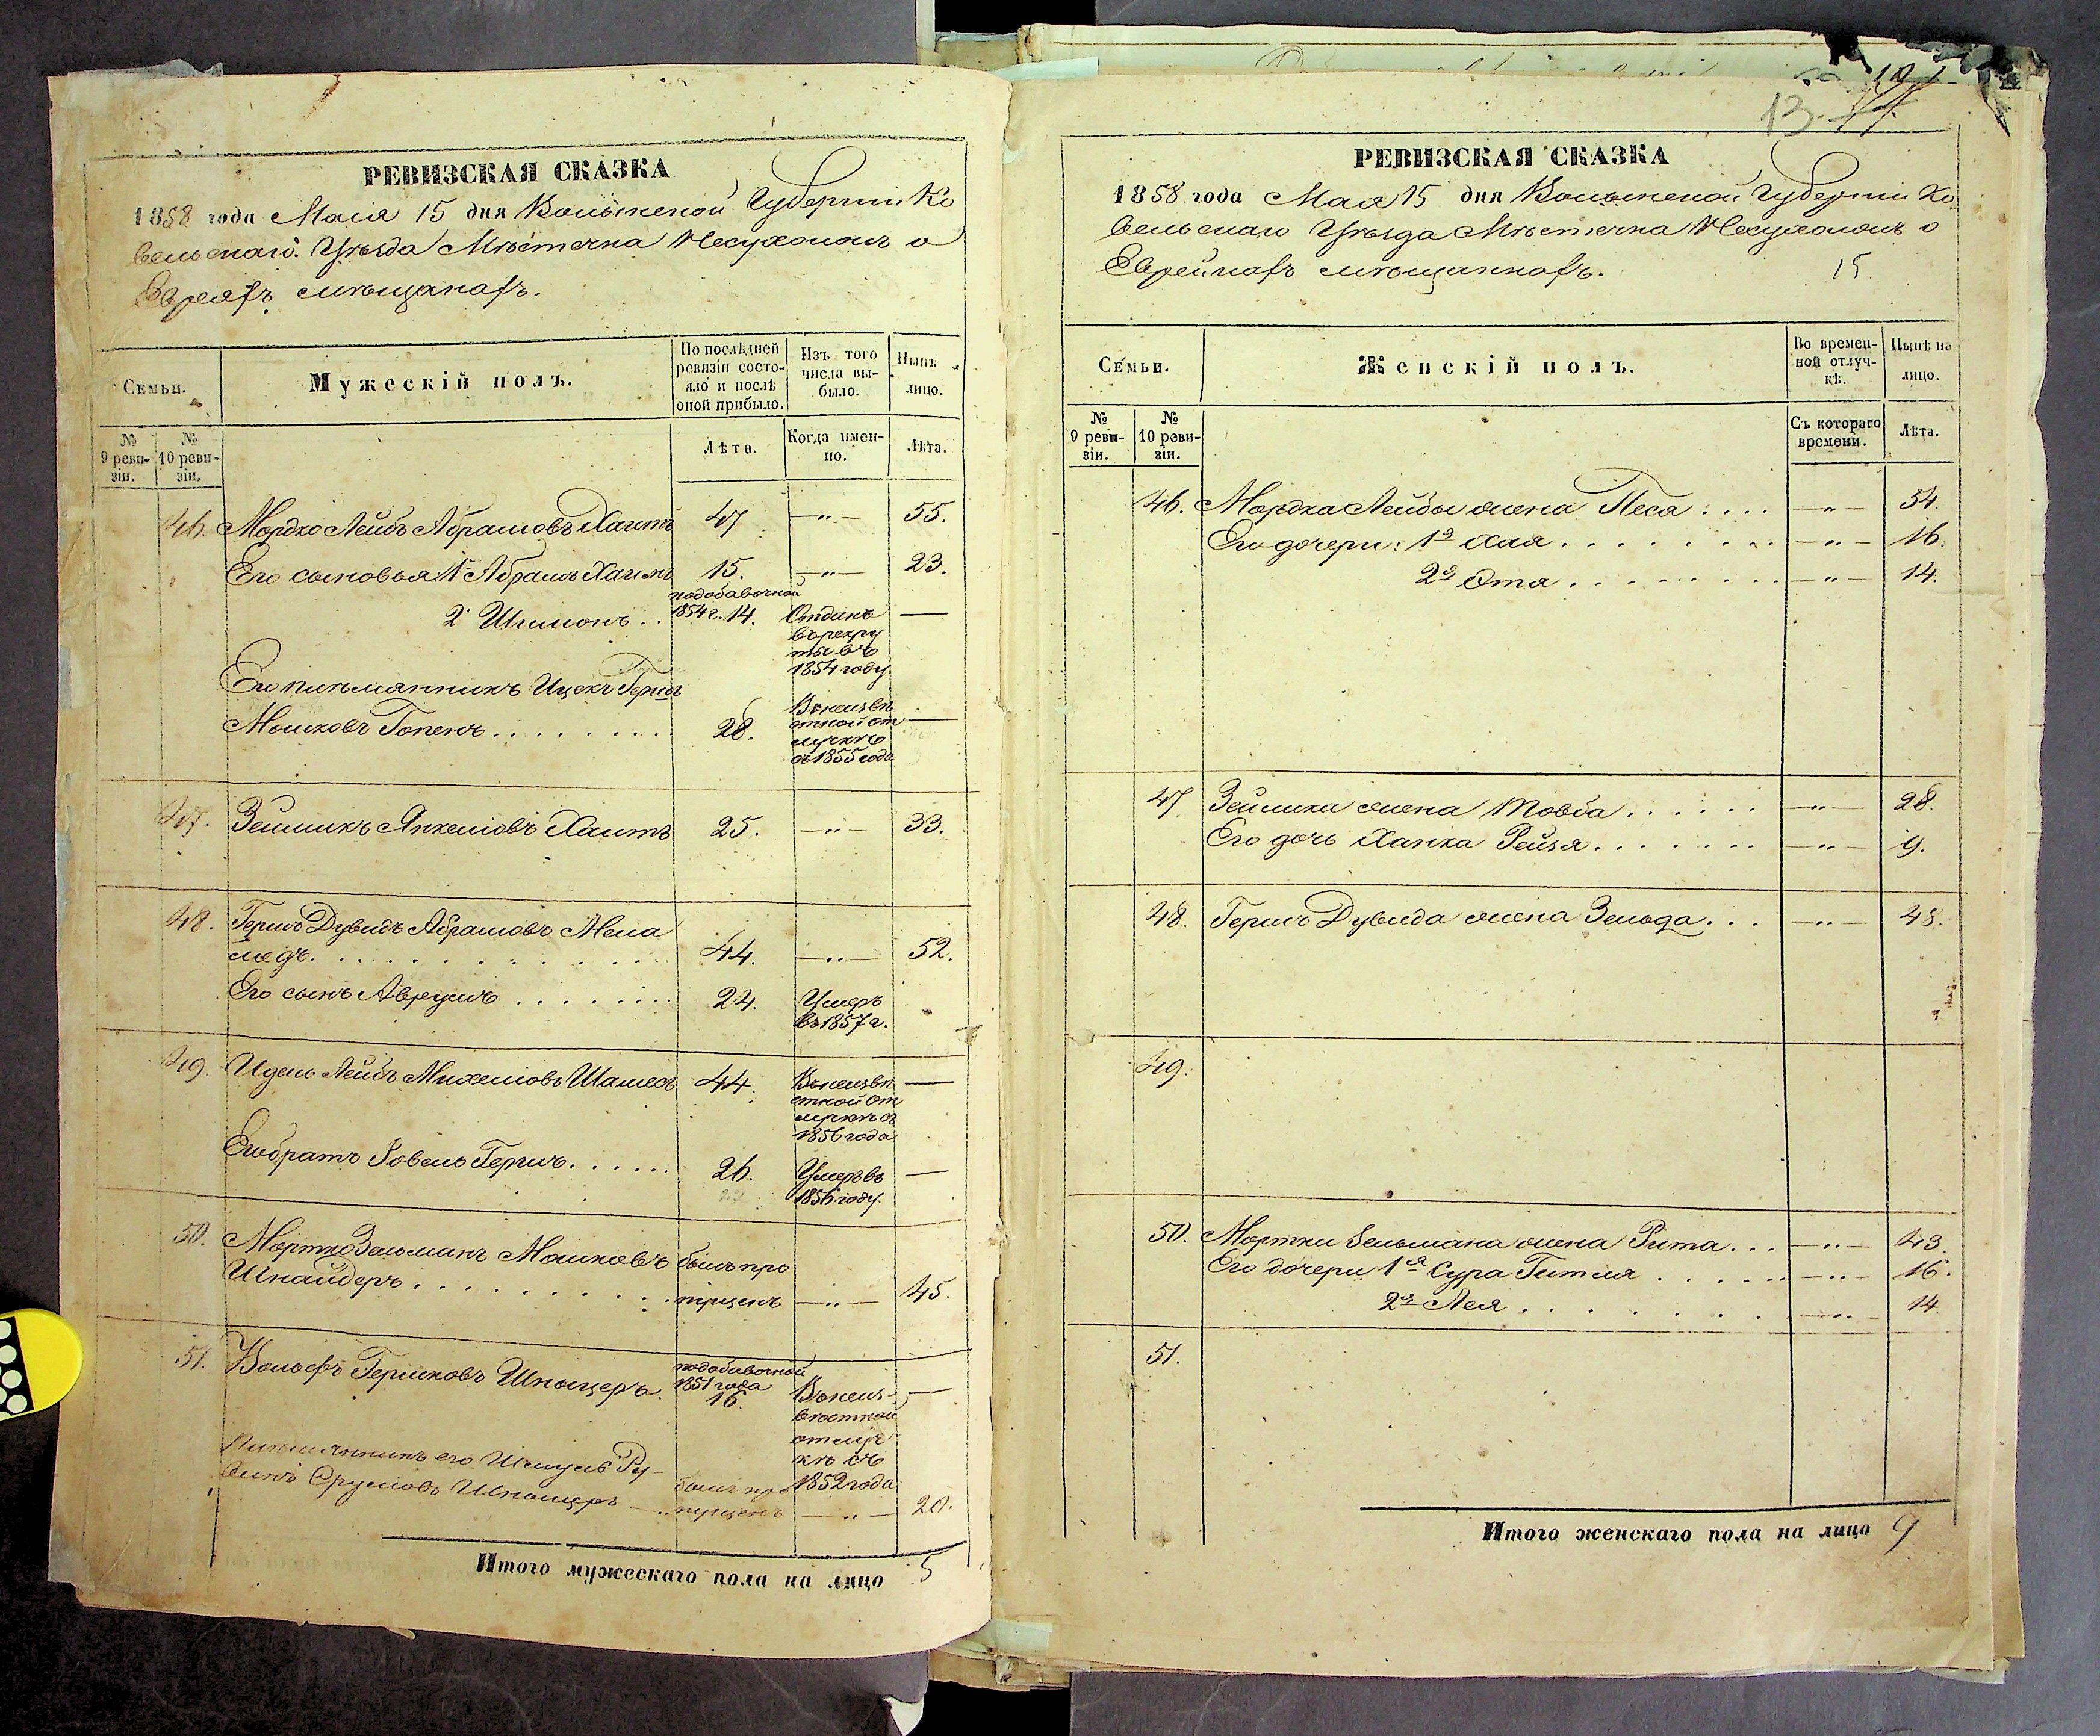 РЕВИЗСКАЯ СКАЗКА
1858 года Маія 15 дня Волынской Губерніи Ко
вельскаго Уѣзда Мѣстечка Несухоижъ о
Евреяхъ мѣщанахъ.
Семьи.
Мужескій полъ.
По послѣдней ревизіи состояло и послѣ оной прибыло.
Изъ того числа выбыло.
Нынѣ на лицо.
№ 9 ревизіи.
№ 10 ревизіи.
Лѣта.
Когда именно.
Лѣта.
46. Мордко Лейбъ Абрамовъ Хаитъ 47 —"— 55.
Его сыновья 1й Абрамъ Хаимъ 15. —"— 23.
подобавочной
2й Шимонъ . . 1854 г. 14. Отданъ —
въ рекру
ты въ
1854 году
Его племянникъ Ицекъ Гершъ
Мошковъ Гопенъ . . . . . . . . 28. Въ неизвѣ
стной от —
лучкѣ
съ 1855 года
47. Зейликъ Янкелiовъ Хаитъ 25. —"— 33.
48. Гершъ Дувидъ Абрамовъ Мела
медъ. . . . . . . . . . . . . . 44. —"— 52.
Его сынъ Аврумъ . . . . . . . 24. Умеръ
въ 1857 г.
49. Идель Лейбъ Михелiовъ Шамесъ 44. Въ неизвѣ —
стной от
лучкѣ съ
1856 года
Его братъ Іовель Гершъ. . . . . . 26. Умеръ въ —
1856 году.
50. Мортко Зельманъ Мошковъ былъ про
Шнайдеръ. . . . . . . . . . пущенъ —"— 45.
51. Вольфъ Гершковъ Шпыцеръ. подобавочной
1851 года
16. Въ неиз- —
вѣстной
отлуч
кѣ съ
1852 года
Племянникъ его Шмуль Ру-
бинъ Сруліовъ Шпыцеръ былъ про
пущенъ —"— 20.
Итого мужескаго пола на лицо 5
13.
РЕВИЗСКАЯ СКАЗКА
1858 года Мая 15 дня Волынской Губерніи Ко
вельскаго Уѣзда Мѣстечка Несухоижъ о
Еврейкахъ мѣщанкахъ. 15
Семьи.
Женскій полъ.
Во временной отлучкѣ.
Нынѣ на лицо.
№ 9 ревизіи.
№ 10 ревизіи.
Съ котораго времени.
Лѣта.
46. Мордка Лейбы жена Песя . . . . —"— 54.
Его дочери: 1я Хая . . . . . . . . —"— 16.
2я Отя . . . . . . . . —"— 14.
47. Зейлика жена Товба . . . . . . —"— 28.
Его дочь Ханка Рейзя . . . . . . . —"— 9.
48. Гершъ Дувида жена Зельда . . . —"— 48.
49.
50. Мортки Зельмана жена Рита . . . —"— 43.
Его дочери 1я Сура Гитля . . . . . —"— 16.
2я Лея . . . . . . . . . —"— 14.
51.
Итого женскаго пола на лицо 9